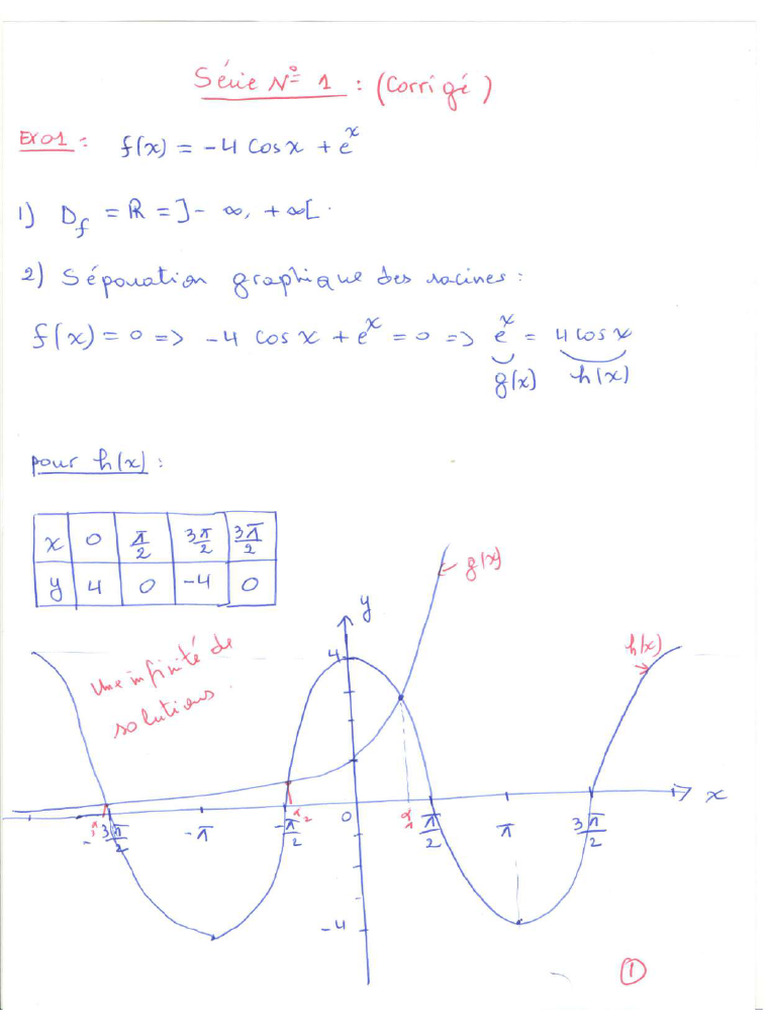 Série N° 1 : (Corrigé)
Exo1 : f(x) = -4 Cosx + e^x
1) D_f = ℝ = ]-∞, +∞[.
2) Séparation graphique des racines :
f(x) = 0 => -4 cosx + e^x = 0 => e^x = 4 cosx
g(x) h(x)
pour h(x) :
x 0 π/2 3π/2 3π/2
y 4 0 -4 0
g(x)
y
h(x)
4
Une infinité de
solutions.
x
-3π/2 -π -π/2 0 π/2 π 3π/2
-4
1